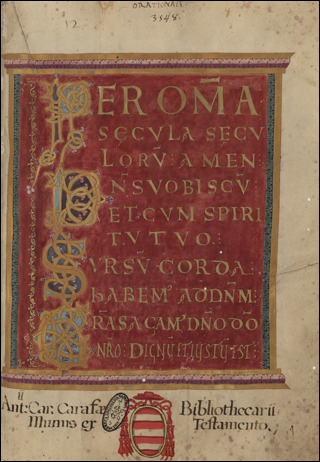 3548.
12
PER OM̅A
SECULA SECU
LORV̅: AMEN:
DN̅S VOBISCV̅:
ET CVM SPIRI
TU TUO:
SURSV̅ CORDA:
hABEM' AD DN̅M:
GRAS AGAM' DN̅O DO̅
NRO: DIGNV̅ ET IUSTV̅ EST:
Ant: Car. Carafæ Bibliothecarii
Munus ex Testamento.